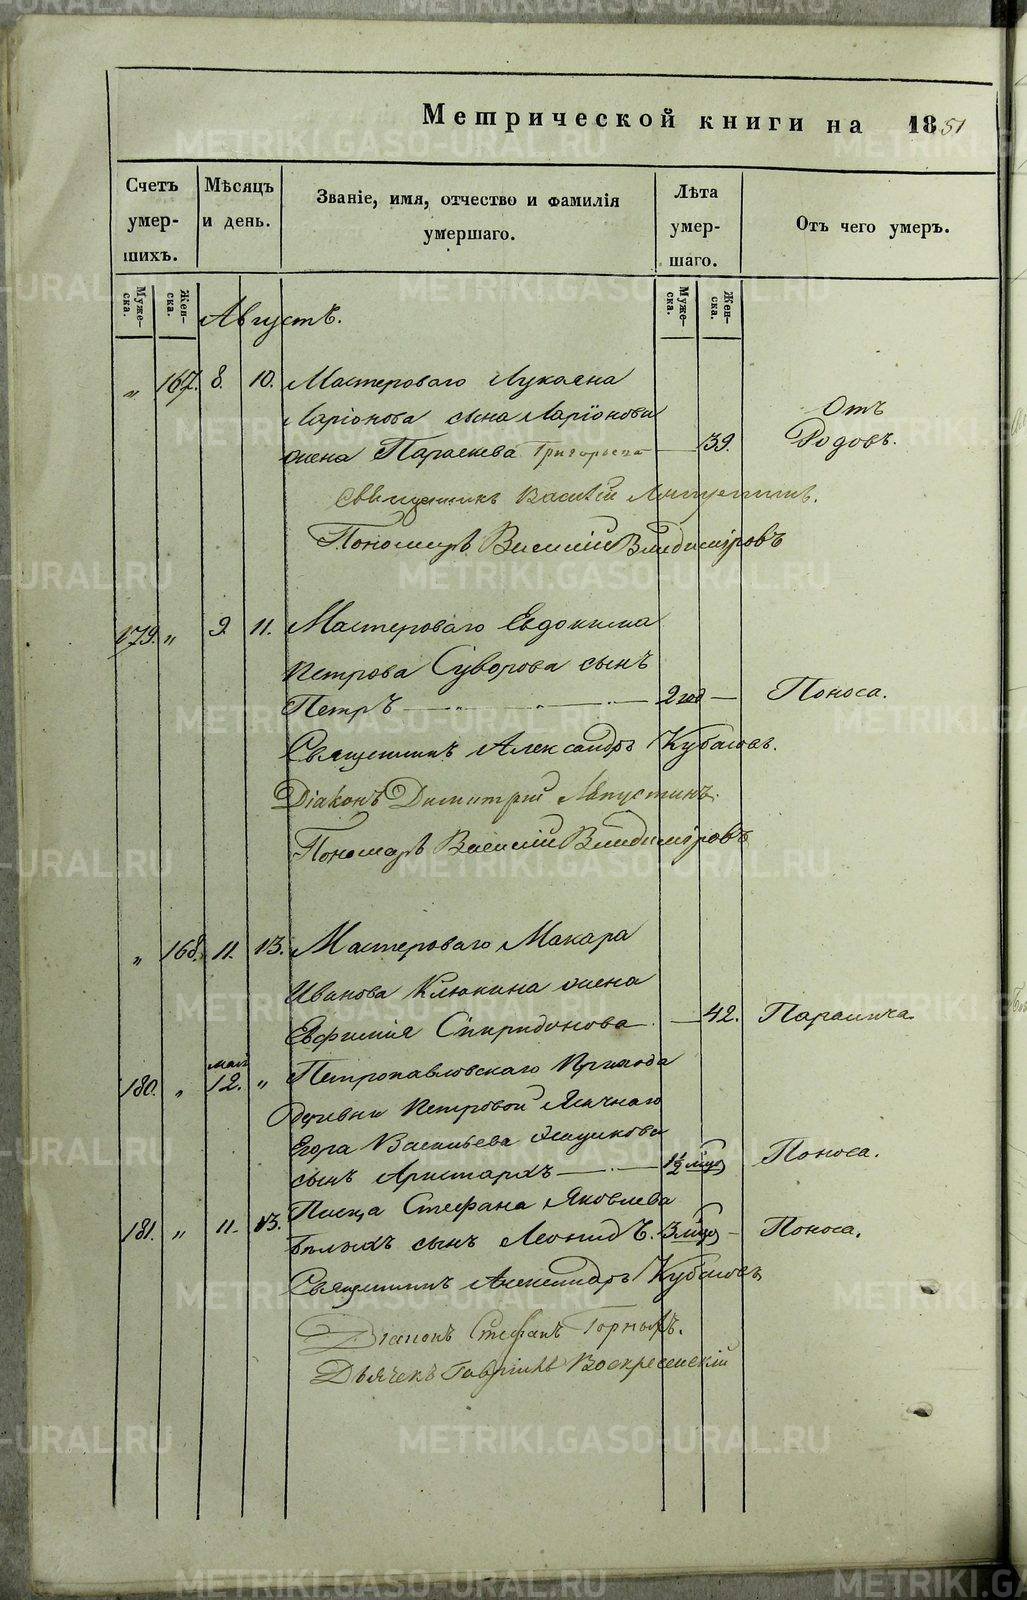 Метрической книги на 1851
Счетъ умер- шихъ.
Мѣсяцъ и день.
Званіе, имя, отчество и фамилія умершаго.
Лѣта умер- шаго.
Отъ чего умеръ.
Муже- ска.
Жен- ска.
Муже- ска.
Жен- ска.
Августъ.
„ 167. 8. 10. Мастероваго Лукаяна
Ларіонова сына Ларіонова
жена Параскева Григорьева — 39. Отъ Родовъ.
Священникъ Василій Лапустинъ.
Пономарь Василій Владиміровъ
179. „ 9. 11. Мастероваго Евдокима
Петрова Суворова сынъ
Петръ — „ — „ — „ — 2 год — Поноса.
Священникъ Александръ Кубасовъ.
Діаконъ Димитрий Лапустинъ.
Пономарь Василій Владиміровъ
„ 168. 11. 13. Мастероваго Макара
Иванова Клюкина жена
Евфимія Спиридонова — 42. Паралича
180. „ май 12. „ Петропавловскаго Прихода
деревни Петровой Ясачнаго
Егора Васильева
сынъ Аристархъ — „ — 1½ Поноса.
181. „ 11. 13. Писца Стефана Яковлева
Бѣлыхъ сынъ Леонидъ. 3 — Поноса.
Священникъ Александръ Кубасовъ
Діаконъ Стефанъ Горныхъ.
Дьячекъ Гавріилъ Воскресенскій
METRIKI.GASO-URAL.RU